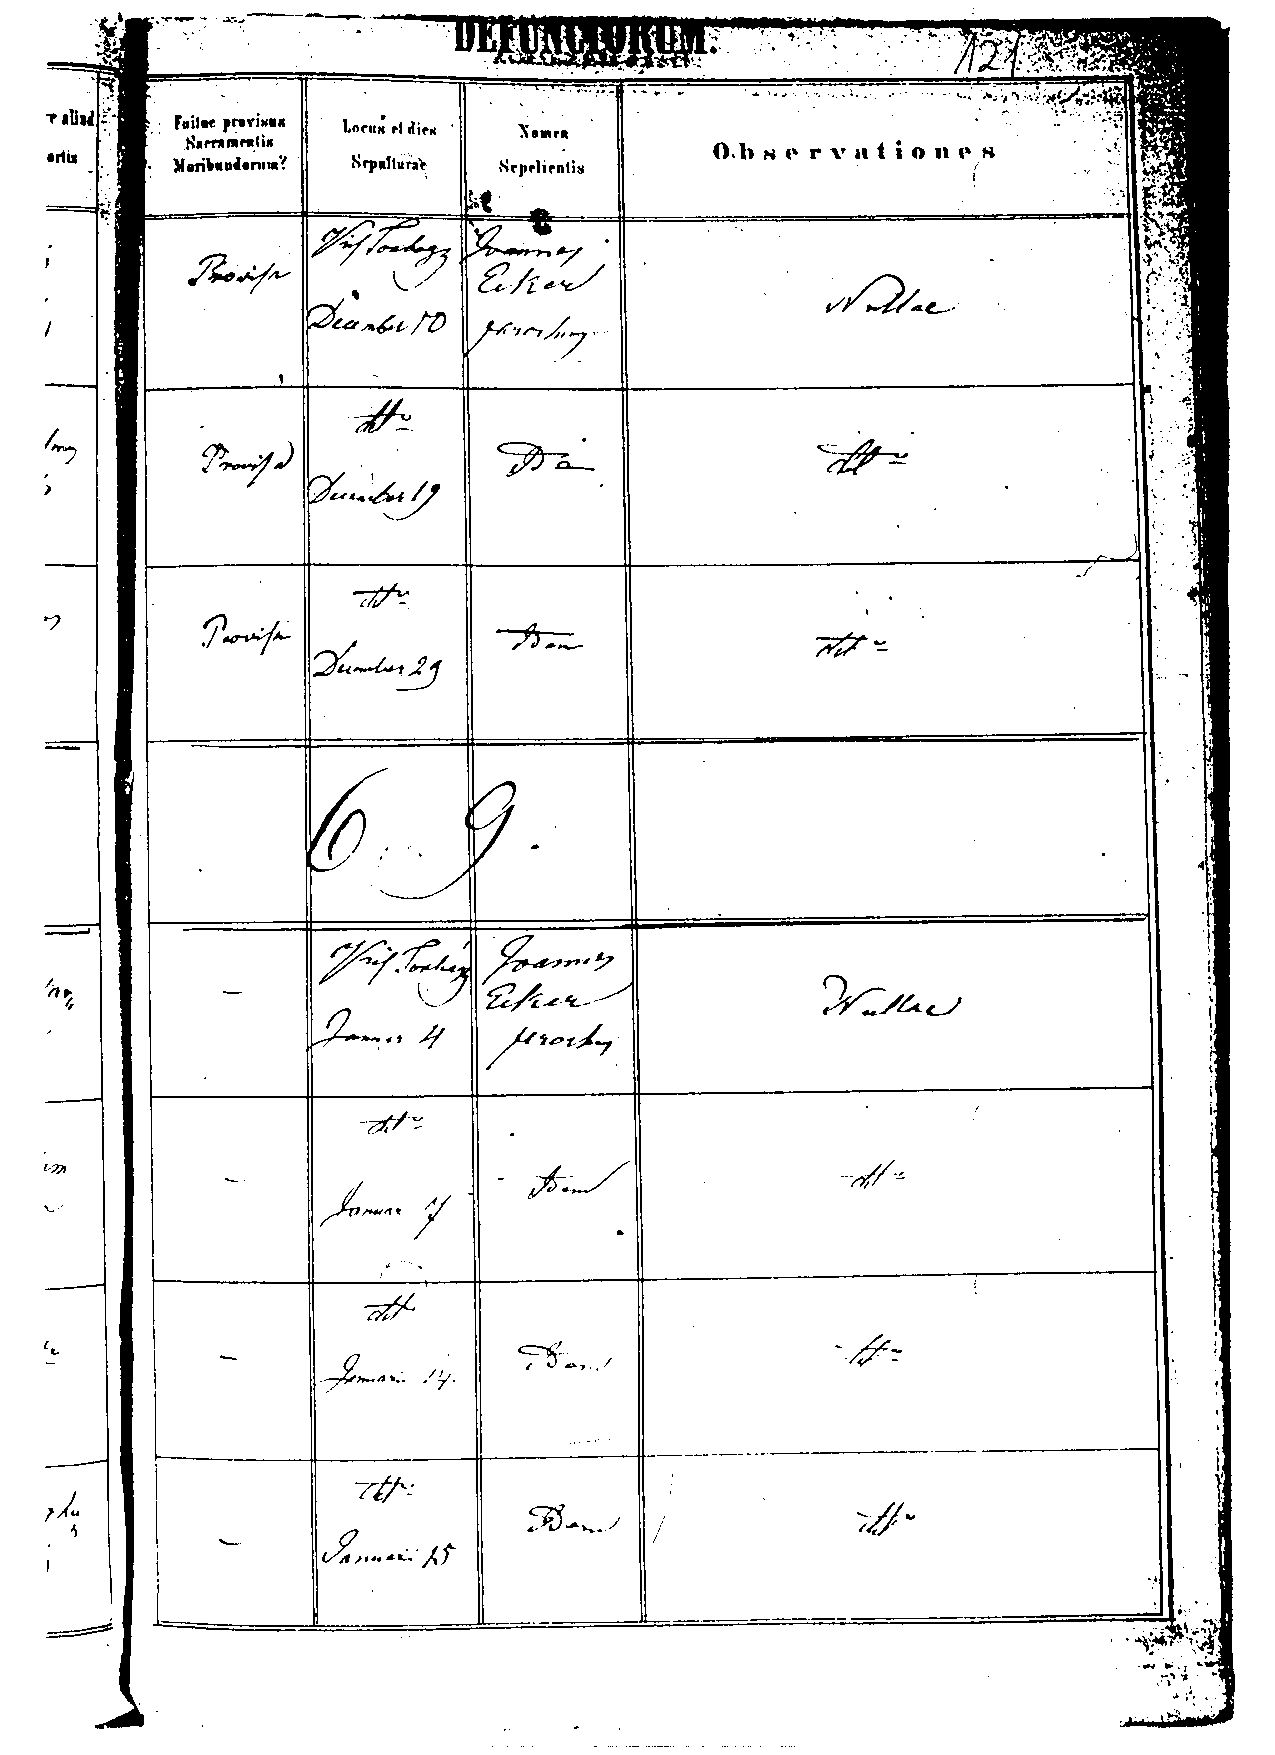 DEFUNCTORUM.
121
Fuitne provisus
Sacramentis
Moribundorum?
Locus et dies
Sepulturae
Nomen
Sepelientis
Observationes
Provisa
December 10
Joannes
Ecker
parochus
Nullae
Provisa
dtto
December 19
Idem
dtto
Provisa
dtto
December 29
Idem
dtto
6 9.
-
Januar 4
Joannes
Ecker
parochus
Nullae
-
dtto
Januar 7
Idem
dtto
-
dtto
Januari 14.
Idem
dtto
-
dtto
Januari 25
Idem
dtto